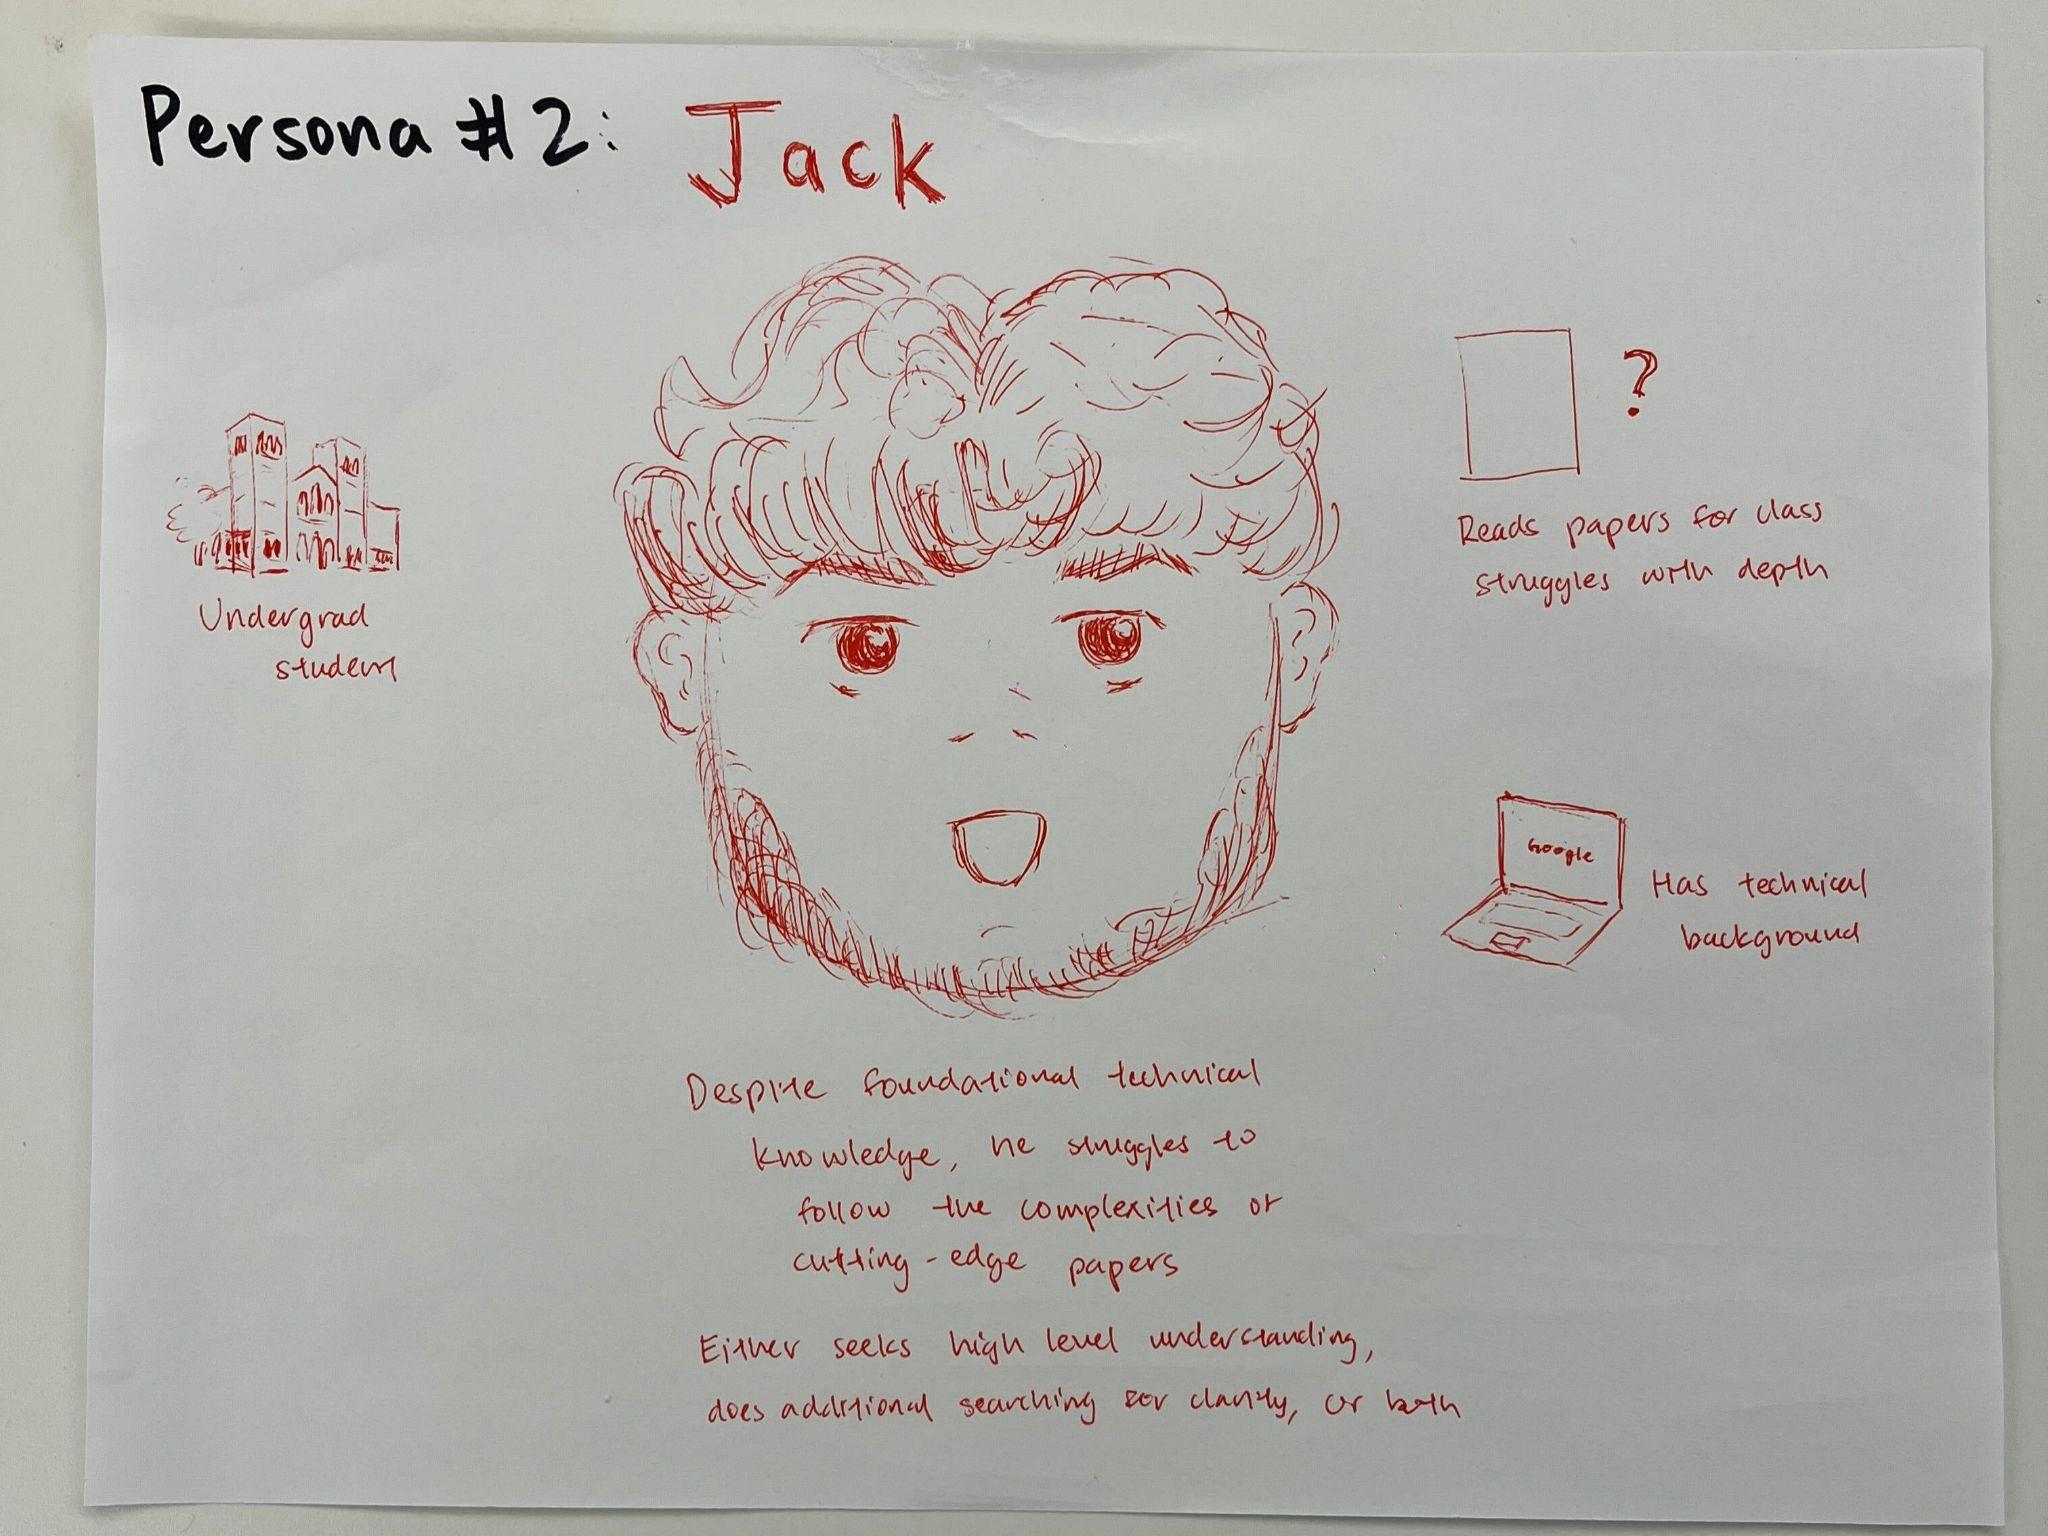 Persona #2: Jack
Undergrad
student
?
Reads papers for class
struggles with depth
Google
Has technical
background
Despite foundational technical
knowledge, he struggles to
follow the complexities of
cutting-edge papers
Either seeks high level understanding,
does additional searching for clarity, or both